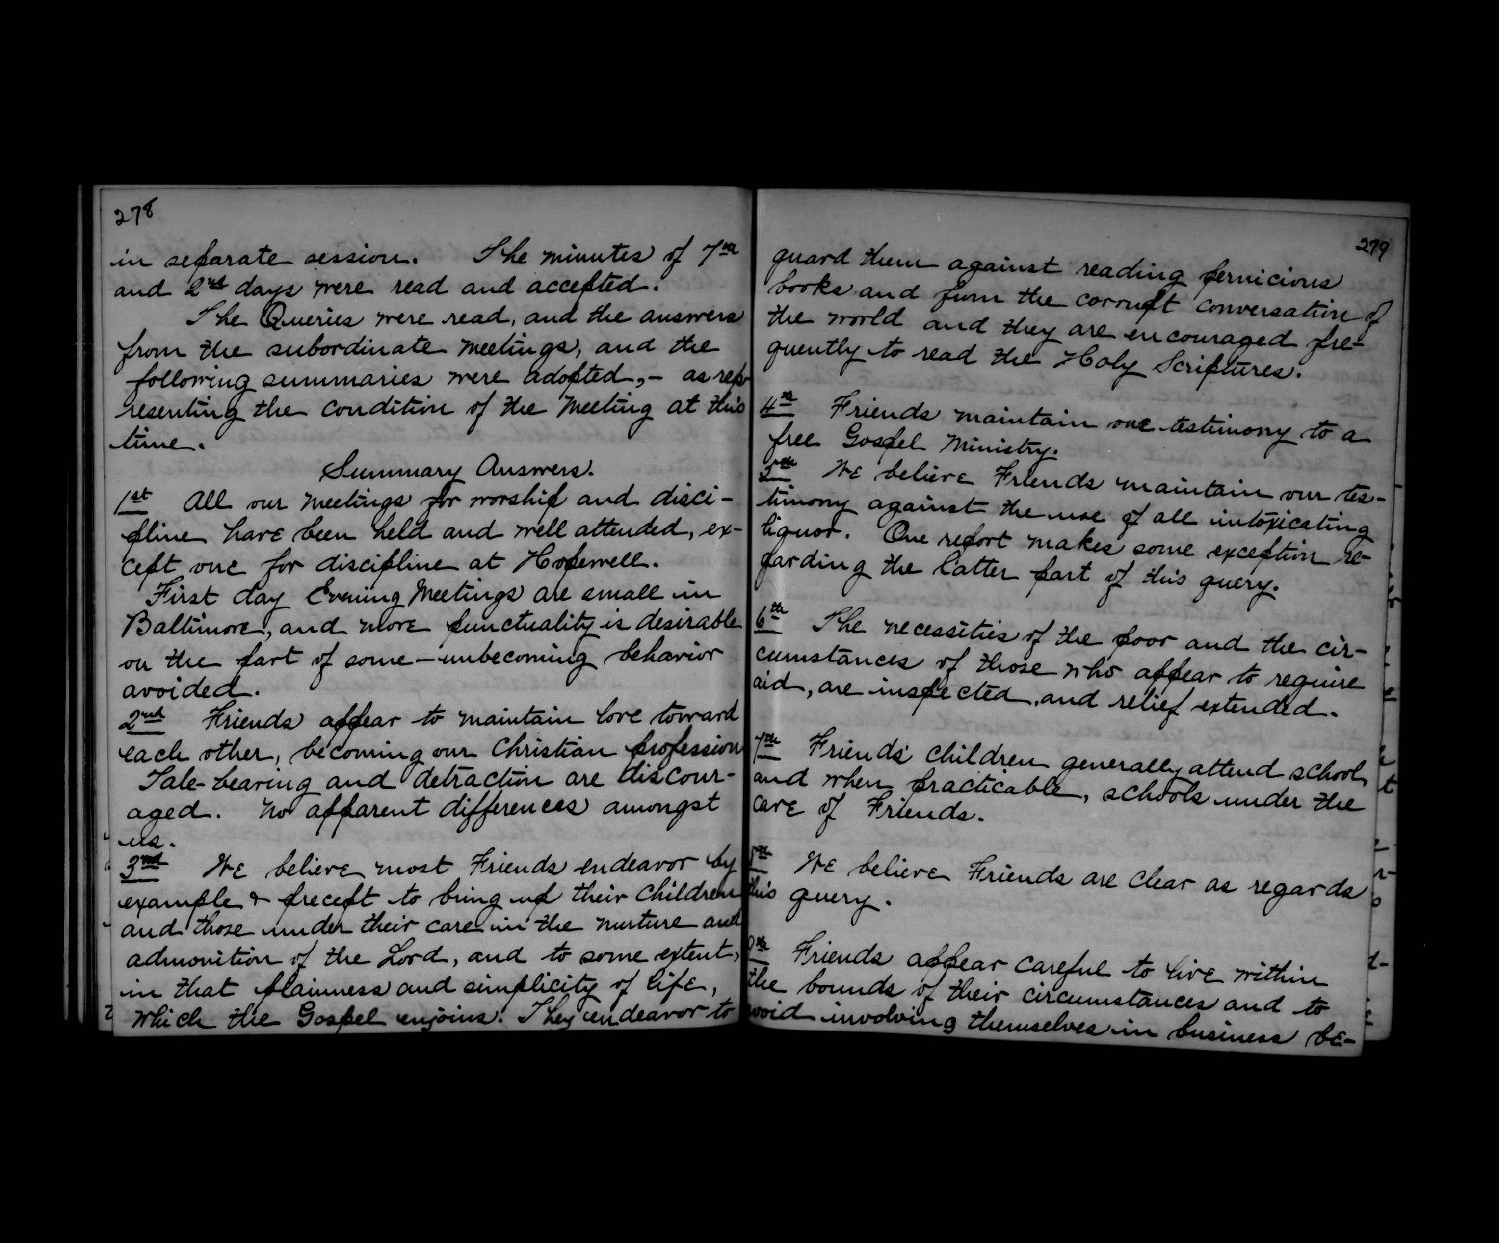 278
in separate session. The minutes of 7th
and 2nd days were read and accepted.
The Queries were read, and the answers
from the subordinate meetings, and the
following summaries were adopted,- as rep-
resenting the condition of the meeting at this
time.
Summary Answers.
1st All our meetings for worship and disci-
pline have been held and well attended, ex-
cept one for discipline at Hopewell.
First day Evening Meetings are small in
Baltimore, and more punctuality is desirable
on the part of some - unbecoming behavior
avoided.
2nd Friends appear to maintain love toward
each other, becoming our Christian profession
Tale-bearing and detraction are discour-
aged. No apparent differences amongst
us.
3rd We believe most Friends endeavor by
example & precept to bring up their children
and those under their care in the nurture and
admonition of the Lord, and to some extent,
in that plainness and simplicity of life,
which the Gospel enjoins. They endeavor to
279
guard them against reading pernicious
books and from the corrupt conversation of
the world and they are encouraged fre-
quently to read the Holy Scriptures.
4th Friends maintain our testimony to a
free Gospel Ministry.
5th We believe Friends maintain our tes-
timony against the use of all intoxicating
liquor. One report makes some exception re-
garding the latter part of this query.
6th The necessities of the poor and the cir-
cumstances of those who appear to require
aid, are inspected, and relief extended.
7th Friends' children generally attend school
and when practicable, schools under the
care of Friends.
8th We believe Friends are clear as regards
this query.
9th Friends appear careful to live within
the bounds of their circumstances and to
avoid involving themselves in business be-